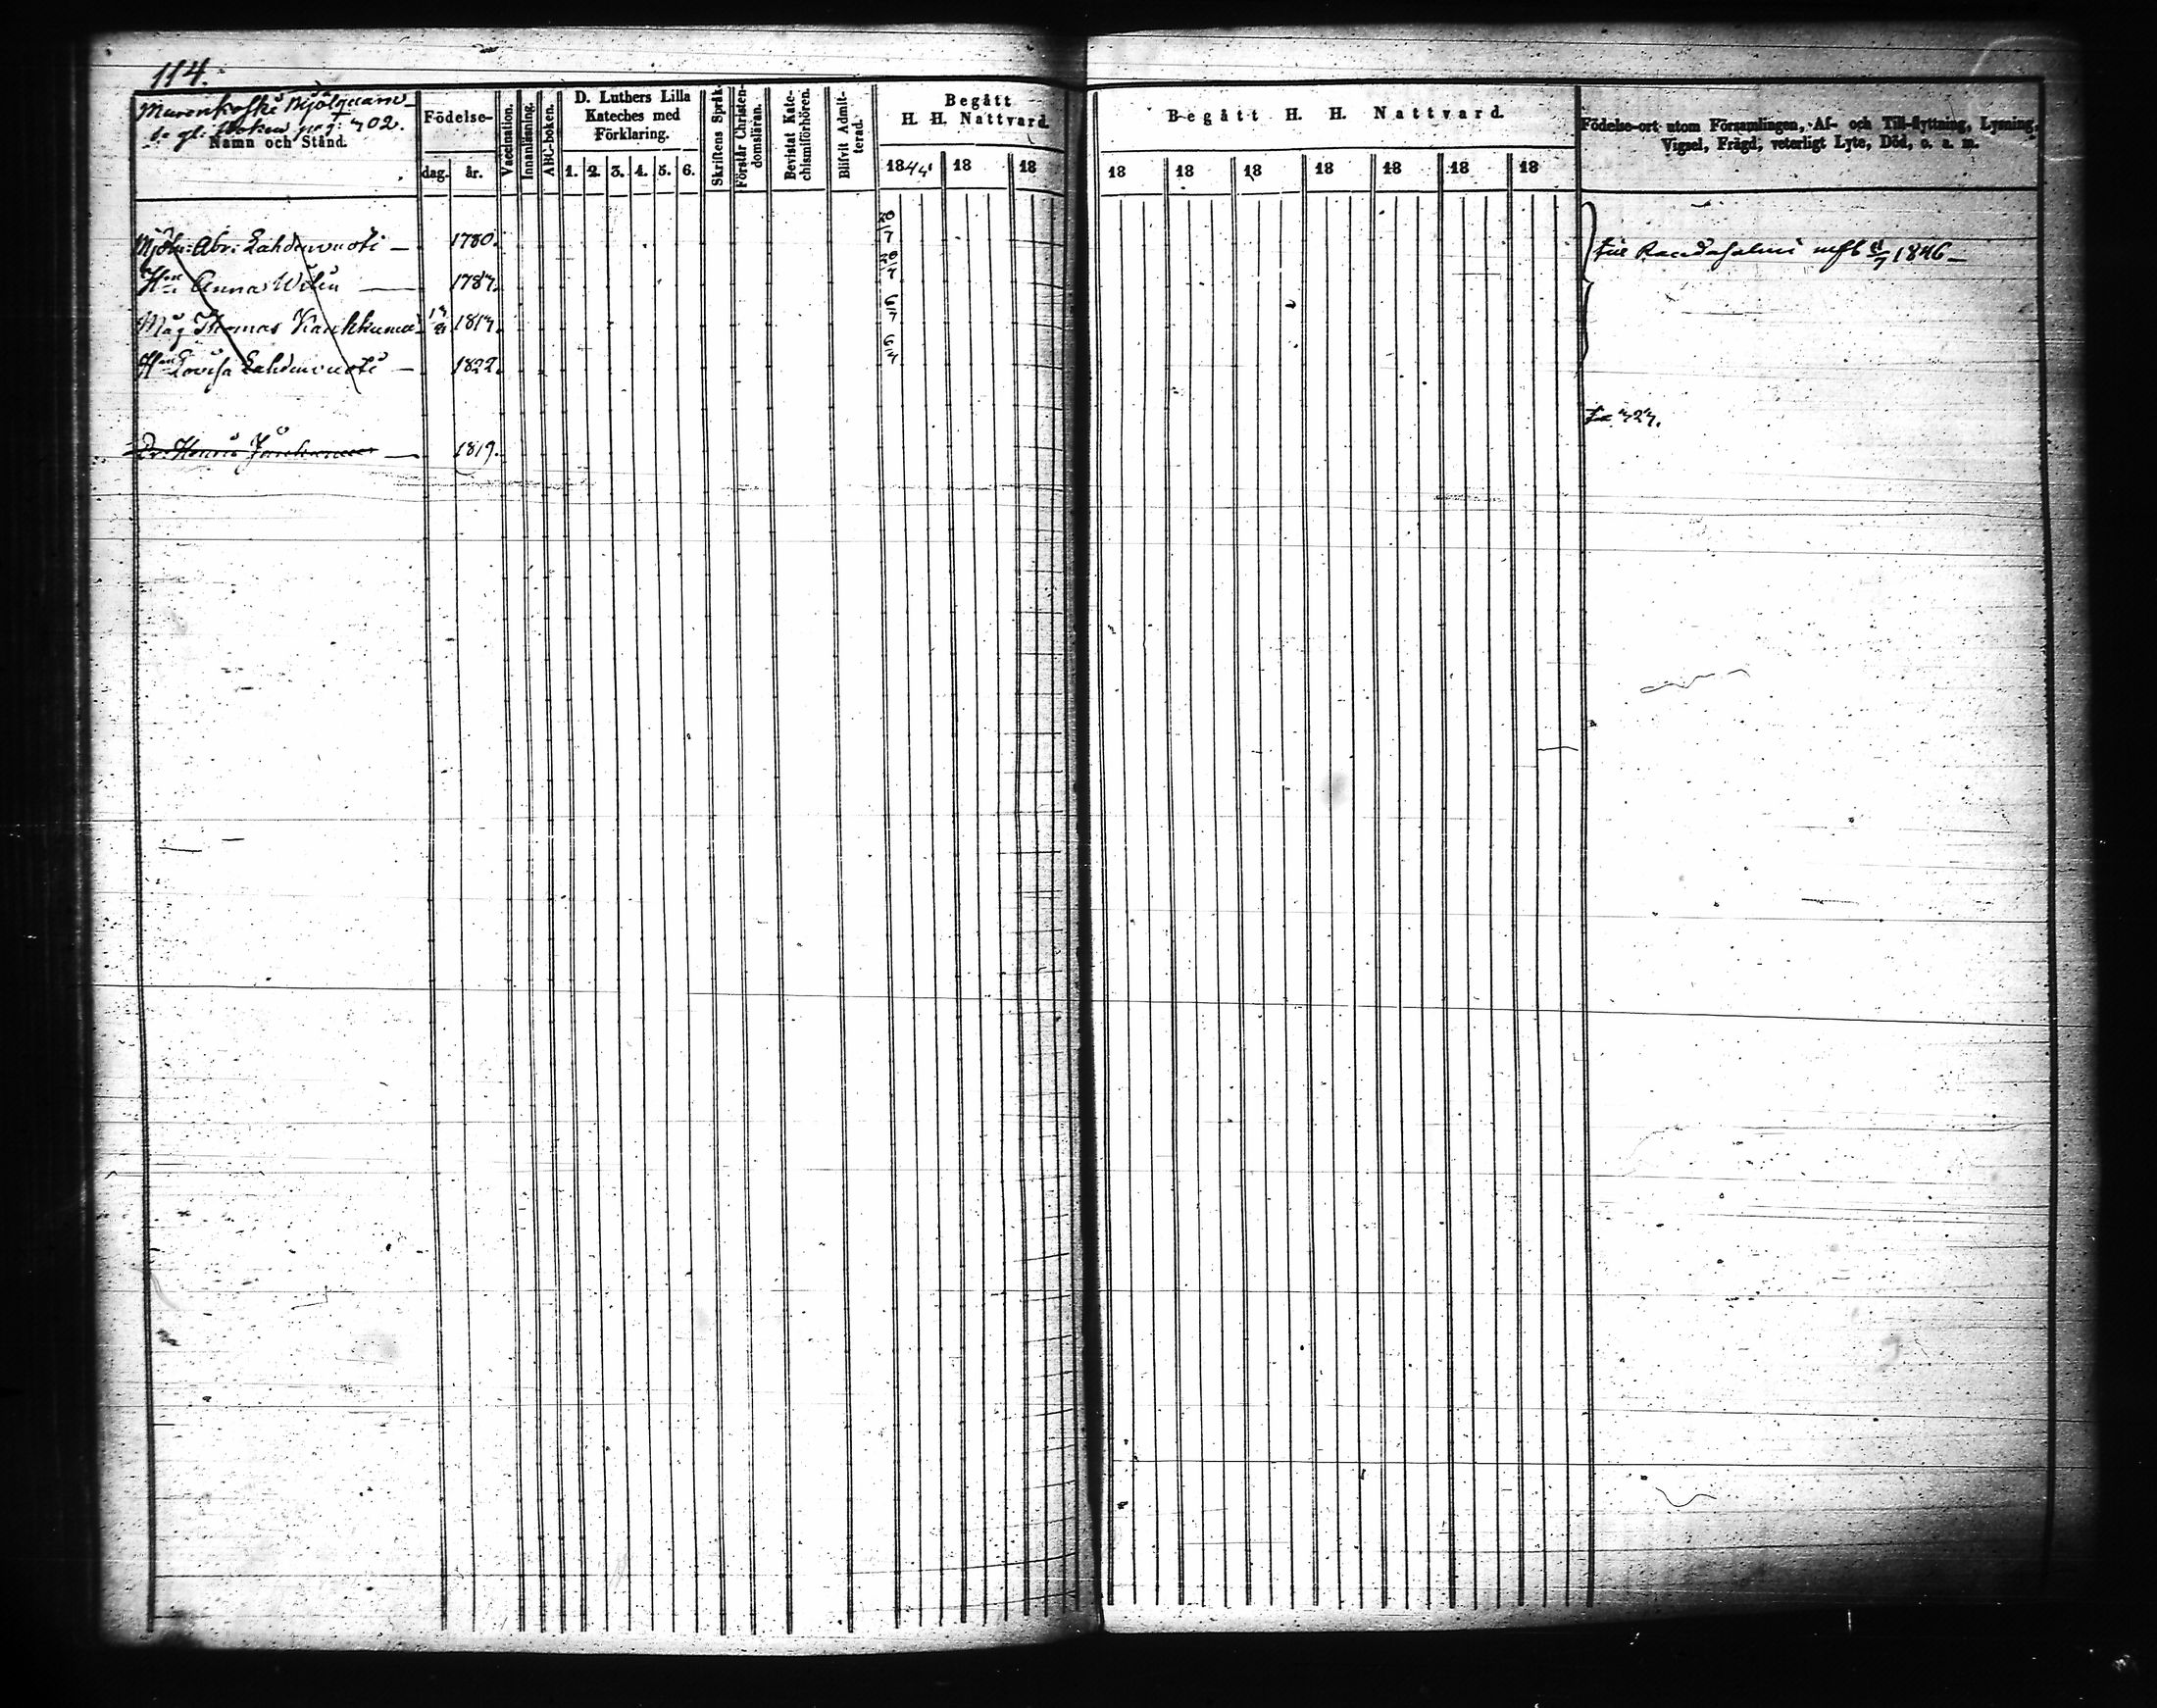 114.
Muurinkoski Mjölquarn
se gl: boken pag: 702.
Namn och Stånd.
Födelse-
dag. år.
Vaccination.
Innanläsning.
ABC-boken.
D. Luthers Lilla
Kateches med
Förklaring.
1. 2. 3. 4. 5. 6.
Skriftens Språk.
Förstår Christen-
domsläran.
Bevistat Kate-
chismiförhören.
Blifvit Admit-
terad.
Begått
H. H. Nattvard.
1844. 18 18
Begått H. H. Nattvard.
18 18 18 18 18 18 18
Födelse-ort utom Församlingen, Af- och Till-flyttning, Lysning,
Vigsel, Frägd, veterligt Lyte, Död, o. s. m.
Mjöln: Abr: Lahdenvuoti — 1780. 20/7
H:n Anna Wilén — 1787. 20/7
Måg Thomas 1817. 6/7
H:n Lovisa Lahdenvuoti — 1822. 6/7
Till Randasalmi 1846 —
Dr. Henric — 1819.
727.